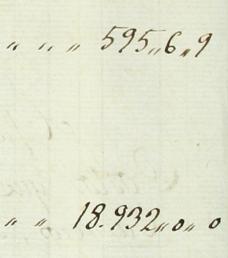 〃 〃 〃 595〃6〃9
〃 〃 18.932〃0〃0